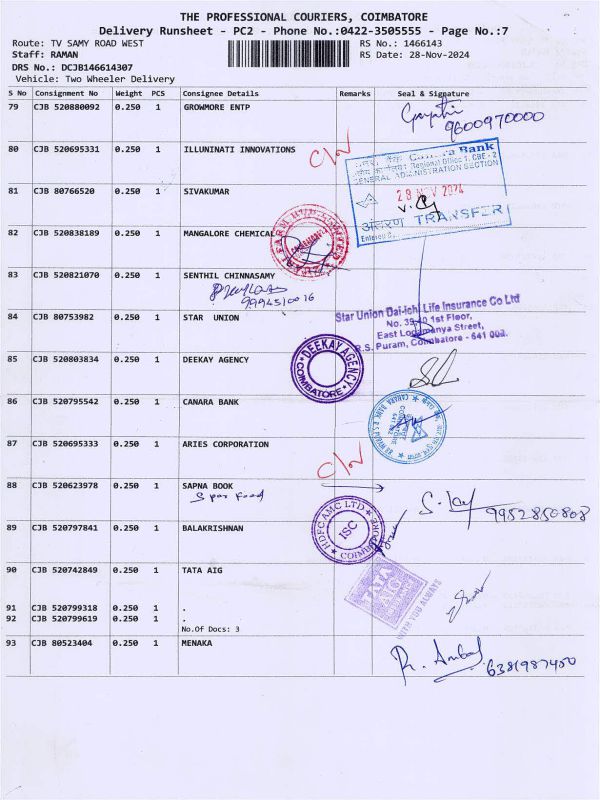 THE PROFESSIONAL COURIERS, COIMBATORE
Delivery Runsheet - PC2 - Phone No.:0422-3505555 - Page No.:7
Route: TV SAMY ROAD WEST
RS No.: 1466143
Staff: RAMAN
RS Date: 28-Nov-2024
DRS No.: DCJB146614307
Vehicle: Two Wheeler Delivery
S No Consignment No Weight PCS Consignee Details Remarks Seal & Signature
79 CJB 520880092 0.250 1 GROWMORE ENTP
9600970000
80 CJB 520695331 0.250 1 ILLUNINATI INNOVATIONS
C/W
Canara Bank
Regional Office 1, CBE - 2
GENERAL ADMINISTRATION SECTION
28 NOV 2024
अंतरण TRANSFER
81 CJB 80766520 0.250 1 SIVAKUMAR
82 CJB 520838189 0.250 1 MANGALORE CHEMICAL
83 CJB 520821070 0.250 1 SENTHIL CHINNASAMY
9994510016
84 CJB 80753982 0.250 1 STAR UNION
Star Union Dai-ichi Life Insurance Co Ltd
1st Floor,
East Logamanya Street,
R.S. Puram, Coimbatore - 641 002.
85 CJB 520803834 0.250 1 DEEKAY AGENCY
DEEKAY AGENCY
COIMBATORE
86 CJB 520795542 0.250 1 CANARA BANK
87 CJB 520695333 0.250 1 ARIES CORPORATION
C/W
88 CJB 520623978 0.250 1 SAPNA BOOK
9952850808
89 CJB 520797841 0.250 1 BALAKRISHNAN
HDFC AMC LTD
ISC
90 CJB 520742849 0.250 1 TATA AIG
TATA
AIG
WITH YOU ALWAYS
91 CJB 520799318 0.250 1 .
92 CJB 520799619 0.250 1 .
No.Of Docs: 3
93 CJB 80523404 0.250 1 MENAKA
R. Ambal
6381987450